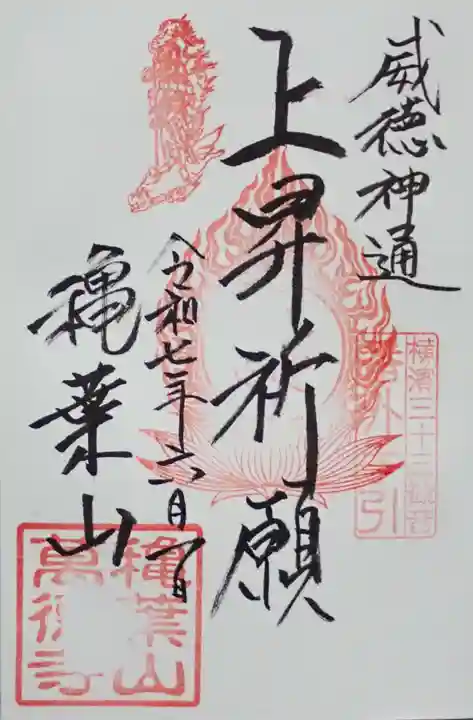 威徳神通
横濱三十三観音
上昇祈願
令和七年六月一日
穐葉山
穐葉山
萬徳寺